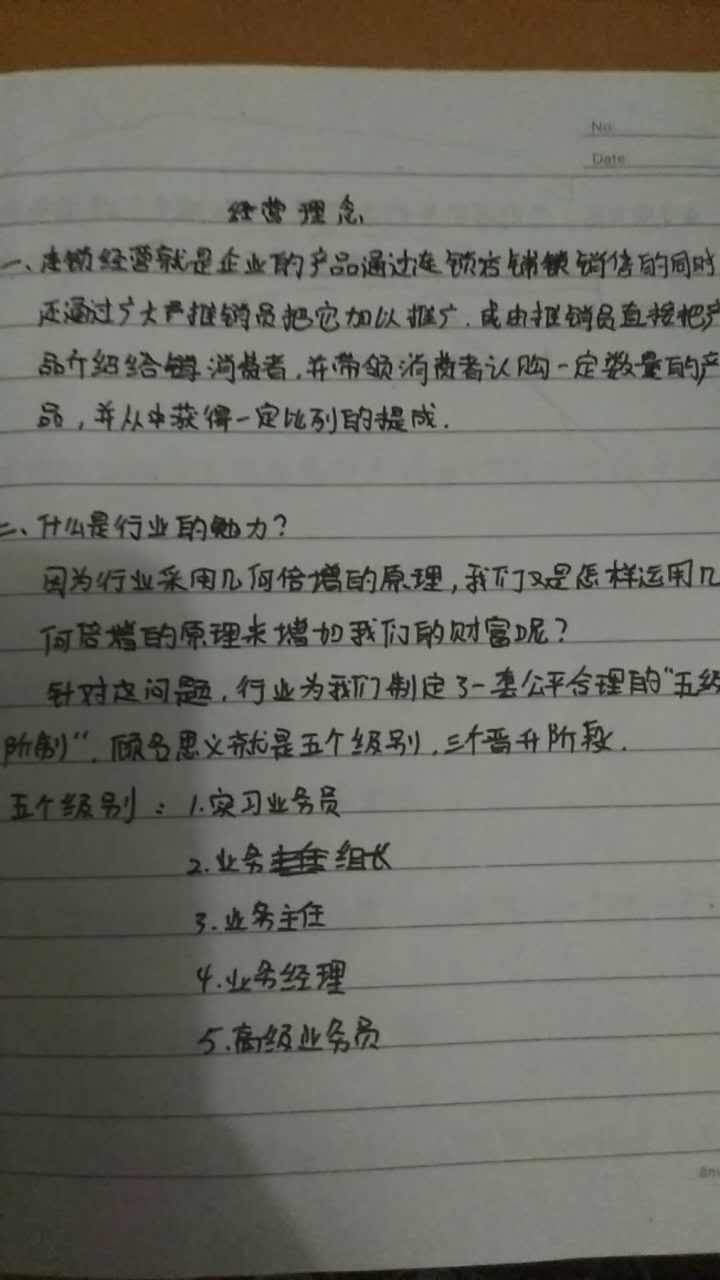 No
Date
经营理念
一、连锁经营就是企业的产品通过连锁店铺销售的同时
还通过广大产推销员把它加以推广.或由推销员直接把产
品介绍给消费者,并带领消费者认购一定数量的产
品,并从中获得一定比列的提成.
二、什么是行业的勉力?
因为行业采用几何倍增的原理,我们又是怎样运用几
何倍增的原理来增加我们的财富呢?
针对这问题,行业为我们制定了一套公平合理的"五级
阶制",顾名思义就是五个级别,三个晋升阶段.
五个级别:1.实习业务员
2.业务组长
3.业务主任
4.业务经理
5.高级业务员